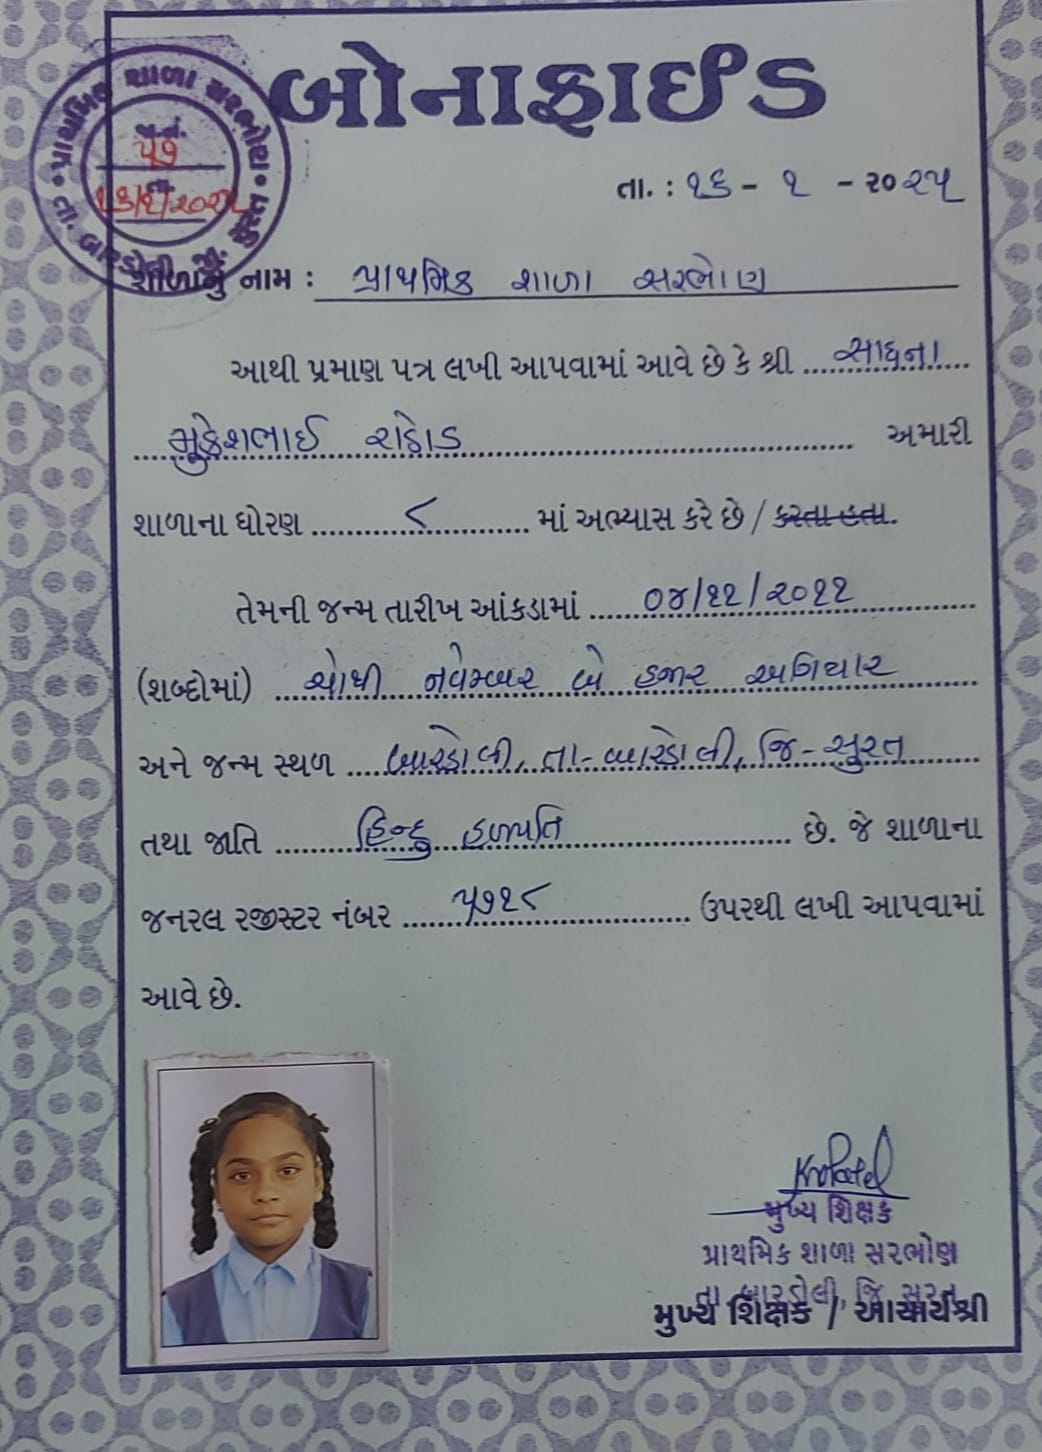 બોનાફાઈડ
પ્રાથમિક શાળા સરભોણ
તા. બારડોલી જી. સુરત
જા.નં.
૫૭
તા.
તા. : ૧૬ - ૧ - ૨૦૨૫
શાળાનું નામ : પ્રાથમિક શાળા સરભોણ
આથી પ્રમાણ પત્ર લખી આપવામાં આવે છે કે શ્રી સાધના
મુકેશભાઈ રાઠોડ અમારી
શાળાના ધોરણ ૮ માં અભ્યાસ કરે છે / કરતા હતા.
તેમની જન્મ તારીખ આંકડામાં ૦૪/૧૧/૨૦૧૧
(શબ્દોમાં) ચોથી નવેમ્બર બે હજાર અગિયાર
અને જન્મ સ્થળ બારડોલી, તા-બારડોલી, જિ-સુરત
તથા જાતિ હિન્દુ હળપતિ છે. જે શાળાના
જનરલ રજીસ્ટર નંબર ૫૭૧૮ ઉપરથી લખી આપવામાં
આવે છે.
KMPatel
મુખ્ય શિક્ષક
પ્રાથમિક શાળા સરભોણ
તા બારડોલી, જિ સુરત
મુખ્ય શિક્ષક / આચાર્યશ્રી